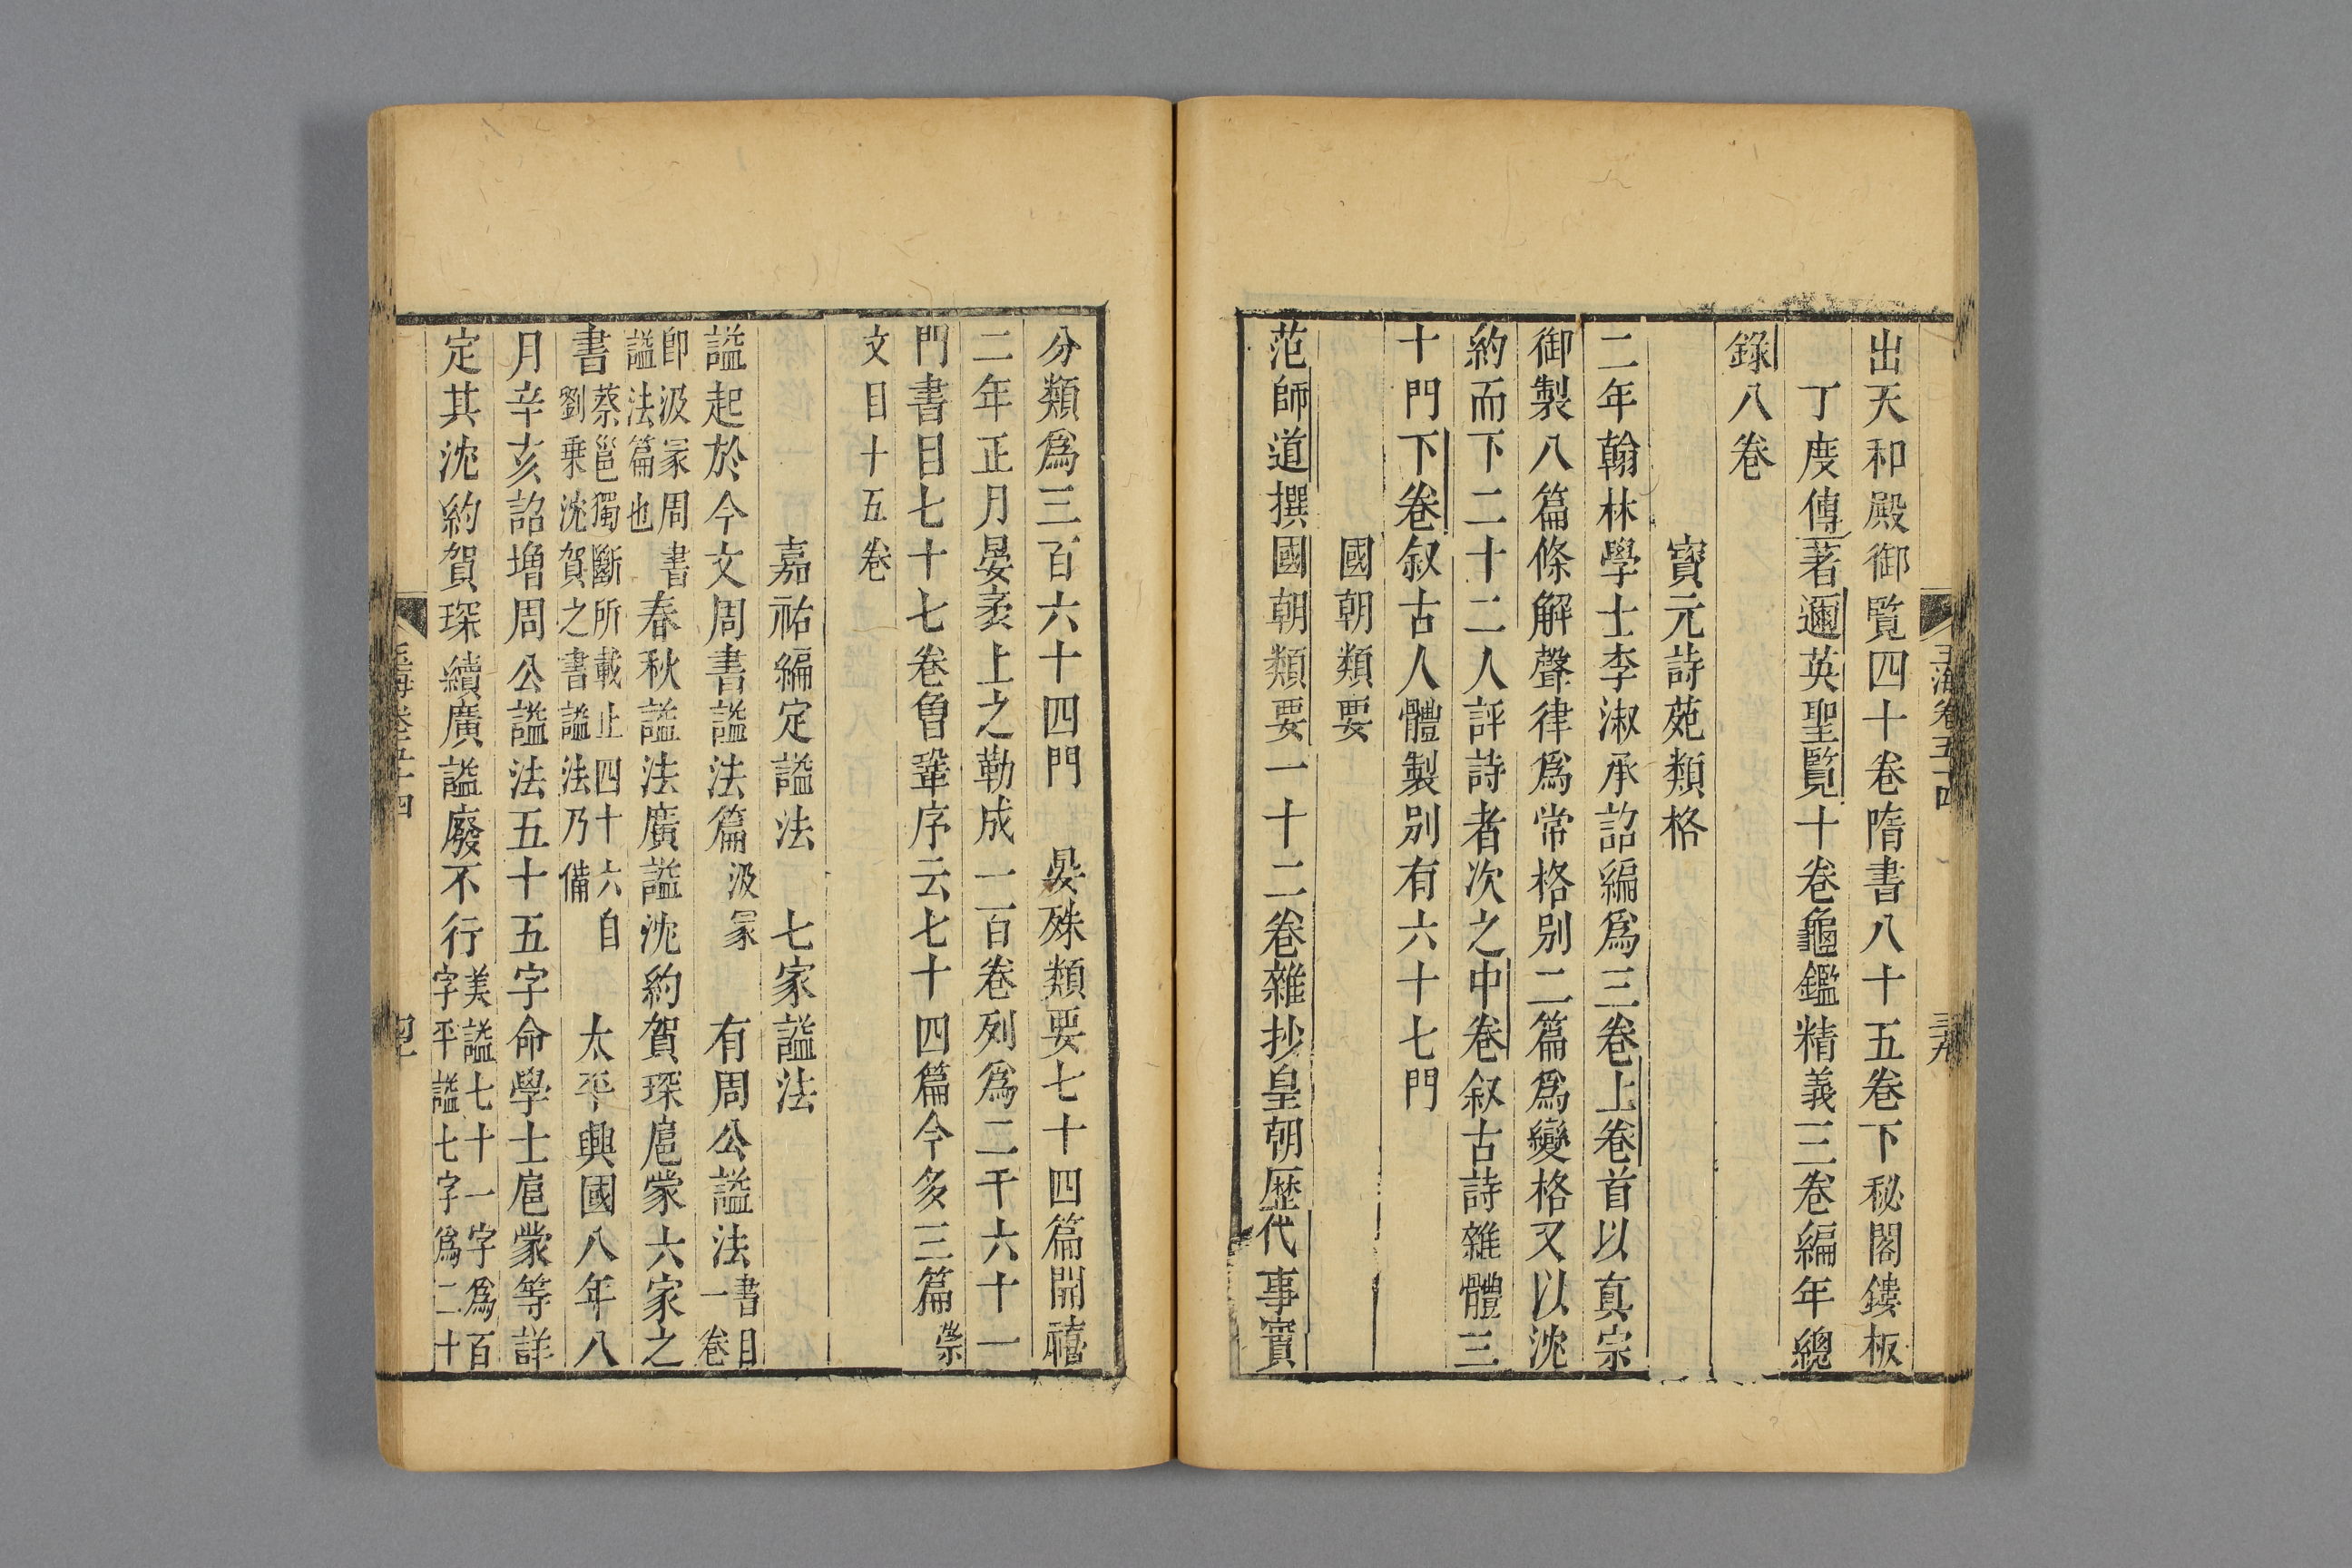 玉海卷五十四 三九
出天和殿御覧四十卷隋書八十五卷下秘閣鏤板
丁度傳著邇英聖覧十卷龜鑑精義三卷編年緫
錄八卷
寳元詩苑類格
二年翰林學士李淑承詔編爲三卷上卷首以真宗
御製八篇條解聲律爲常格别二篇爲變格又以沈
約而下二十二人評詩者次之中卷叙古詩雜體三
十門下卷叙古人體製别有六十七門
國朝類要
范師道撰國朝類要一十二卷雜抄皇朝歷代事實
分類爲三百六十四門 晏殊類要七十四篇開禧
二年正月晏袤上之勒成一百卷列爲二千六十一
門書目七十七卷曾鞏序云七十四篇今多三篇崇
文目十五卷
嘉祐編定諡法 七家諡法
諡起於今文周書諡法篇汲冢 有周公諡法書目一卷
即汲冢周書諡法篇也 春秋諡法廣諡沈約賀琛扈蒙六家之
書蔡邕獨斷所載止四十六自劉乗沈賀之書諡法乃備 太平興國八年八
月辛亥詔增周公諡法五十五字命學士扈蒙等詳
定其沈約賀琛續廣諡廢不行美諡七十一字爲百字平諡七字爲二十
玉海卷五十四